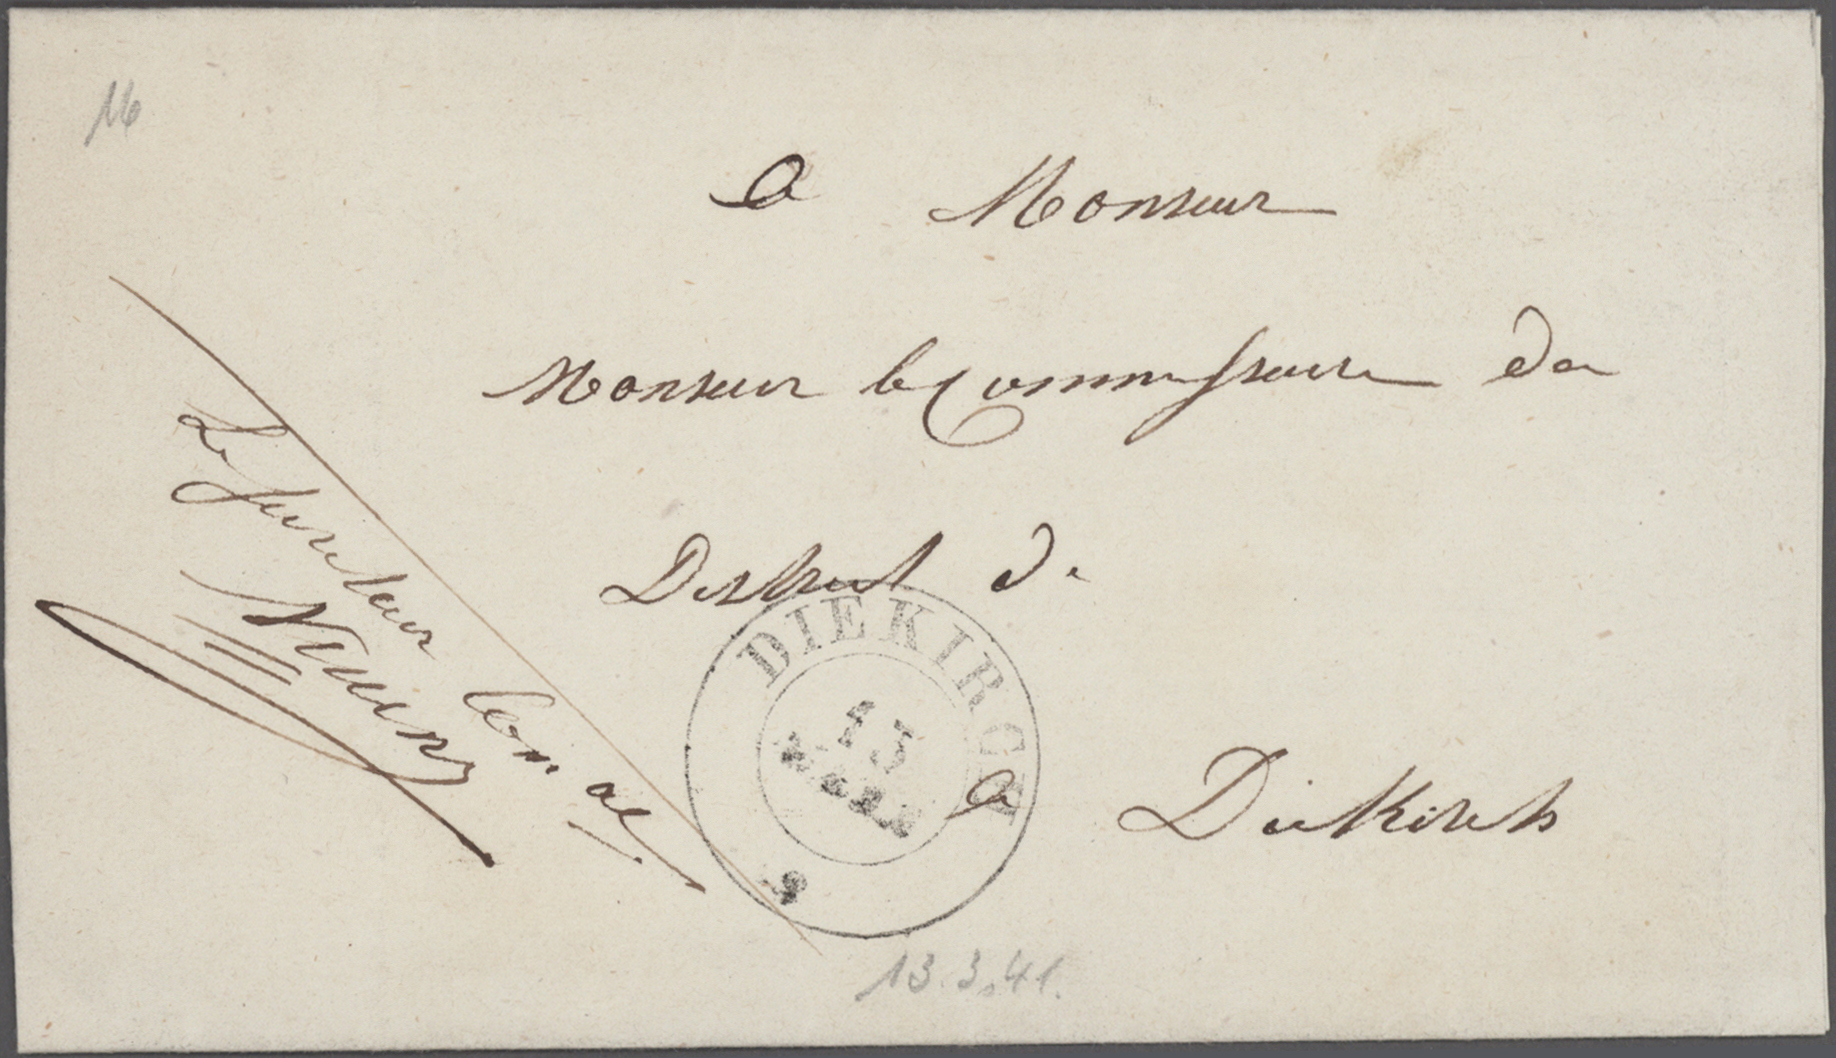 16
A Monsieur
Monsieur le Commissaire de
District de
à Diekirch
Le facteur
DIEKIRCH
13
MÄRZ
13.3.41.